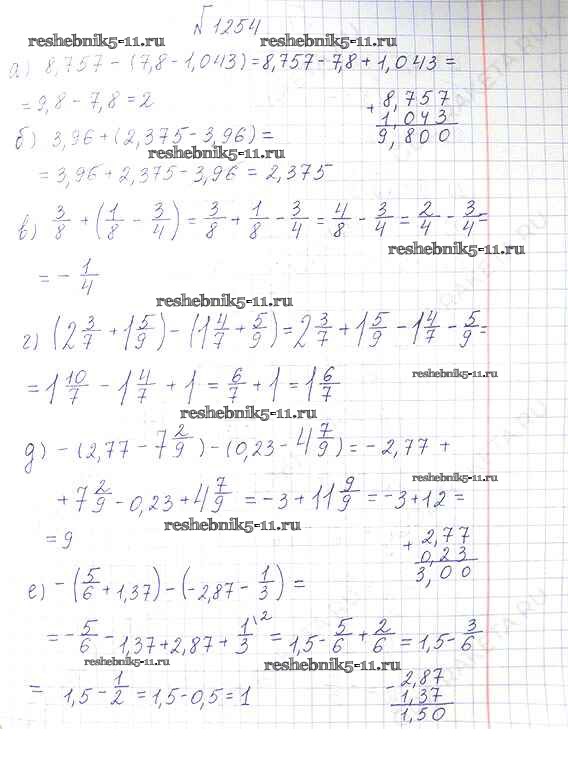 №1254
reshebnik5-11.ru
а) 8,757 - (7,8 - 1,043) = 8,757 - 7,8 + 1,043 =
= 9,8 - 7,8 = 2
+ 8,757
1,043
9,800
б) 3,96 + (2,375 - 3,96) =
reshebnik5-11.ru
= 3,96 + 2,375 - 3,96 = 2,375
в) 3/8 + (1/8 - 3/4) = 3/8 + 1/8 - 3/4 = 4/8 - 3/4 = 2/4 - 3/4 =
reshebnik5-11.ru
= - 1/4
reshebnik5-11.ru
г) (2 3/7 + 1 5/9) - (1 4/7 + 5/9) = 2 3/7 + 1 5/9 - 1 4/7 - 5/9 =
= 1 10/7 - 1 4/7 + 1 = 6/7 + 1 = 1 6/7
reshebnik5-11.ru
reshebnik5-11.ru
д) - (2,77 - 7 2/9) - (0,23 - 4 7/9) = - 2,77 +
reshebnik5-11.ru
+ 7 2/9 - 0,23 + 4 7/9 = - 3 + 11 9/9 = - 3 + 12 =
reshebnik5-11.ru
= 9
+ 2,77
0,23
3,00
е) - (5/6 + 1,37) - (-2,87 - 1/3) =
= - 5/6 - 1,37 + 2,87 + 1/3 \2 = 1,5 - 5/6 + 2/6 = 1,5 - 3/6
reshebnik5-11.ru
reshebnik5-11.ru
= 1,5 - 1/2 = 1,5 - 0,5 = 1
- 2,87
1,37
1,50